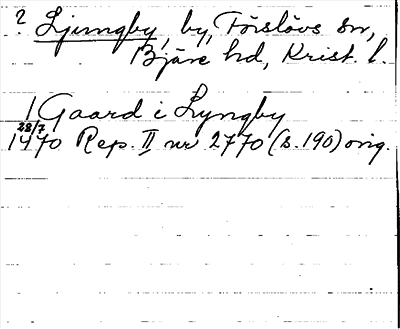 ? Ljungby, by, Förslövs sn,
Bjäre hd, Krist. l.
1 Gaard i Lyngby
28/7
1470 Rep. II nr 2770 (s. 190) orig.